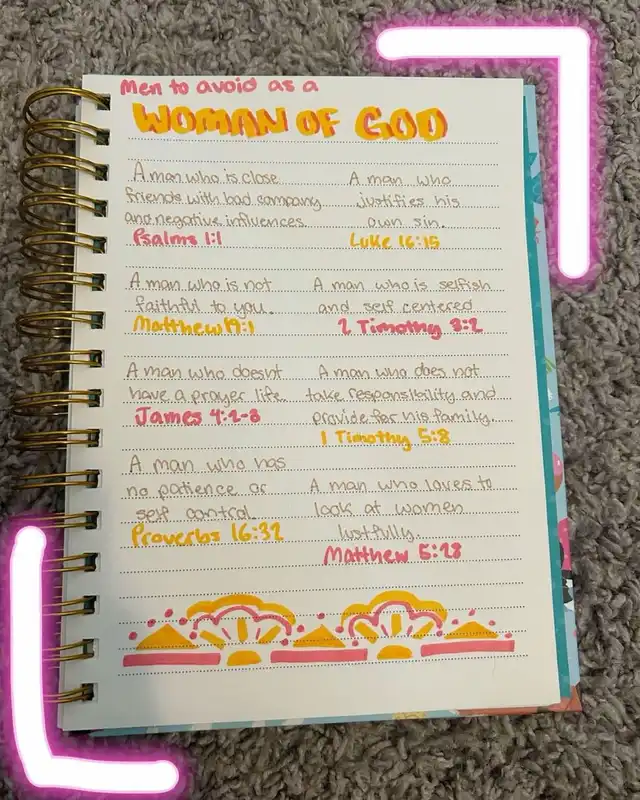 Men to avoid as a
WOMAN OF GOD
A man who is close
friends with bad company
and negative influences.
Psalms 1:1
A man who
justifies his
own sin.
Luke 16:15
A man who is not
faithful to you.
Matthew 19:1
A man who is selfish
and self centered
2 Timothy 3:2
A man who doesnt
have a prayer life.
James 4:2-8
A man who does not
take responsibility and
provide for his family.
1 Timothy 5:8
A man who has
no patience or
self control
Proverbs 16:32
A man who loves to
look at women
lustfully.
Matthew 5:28